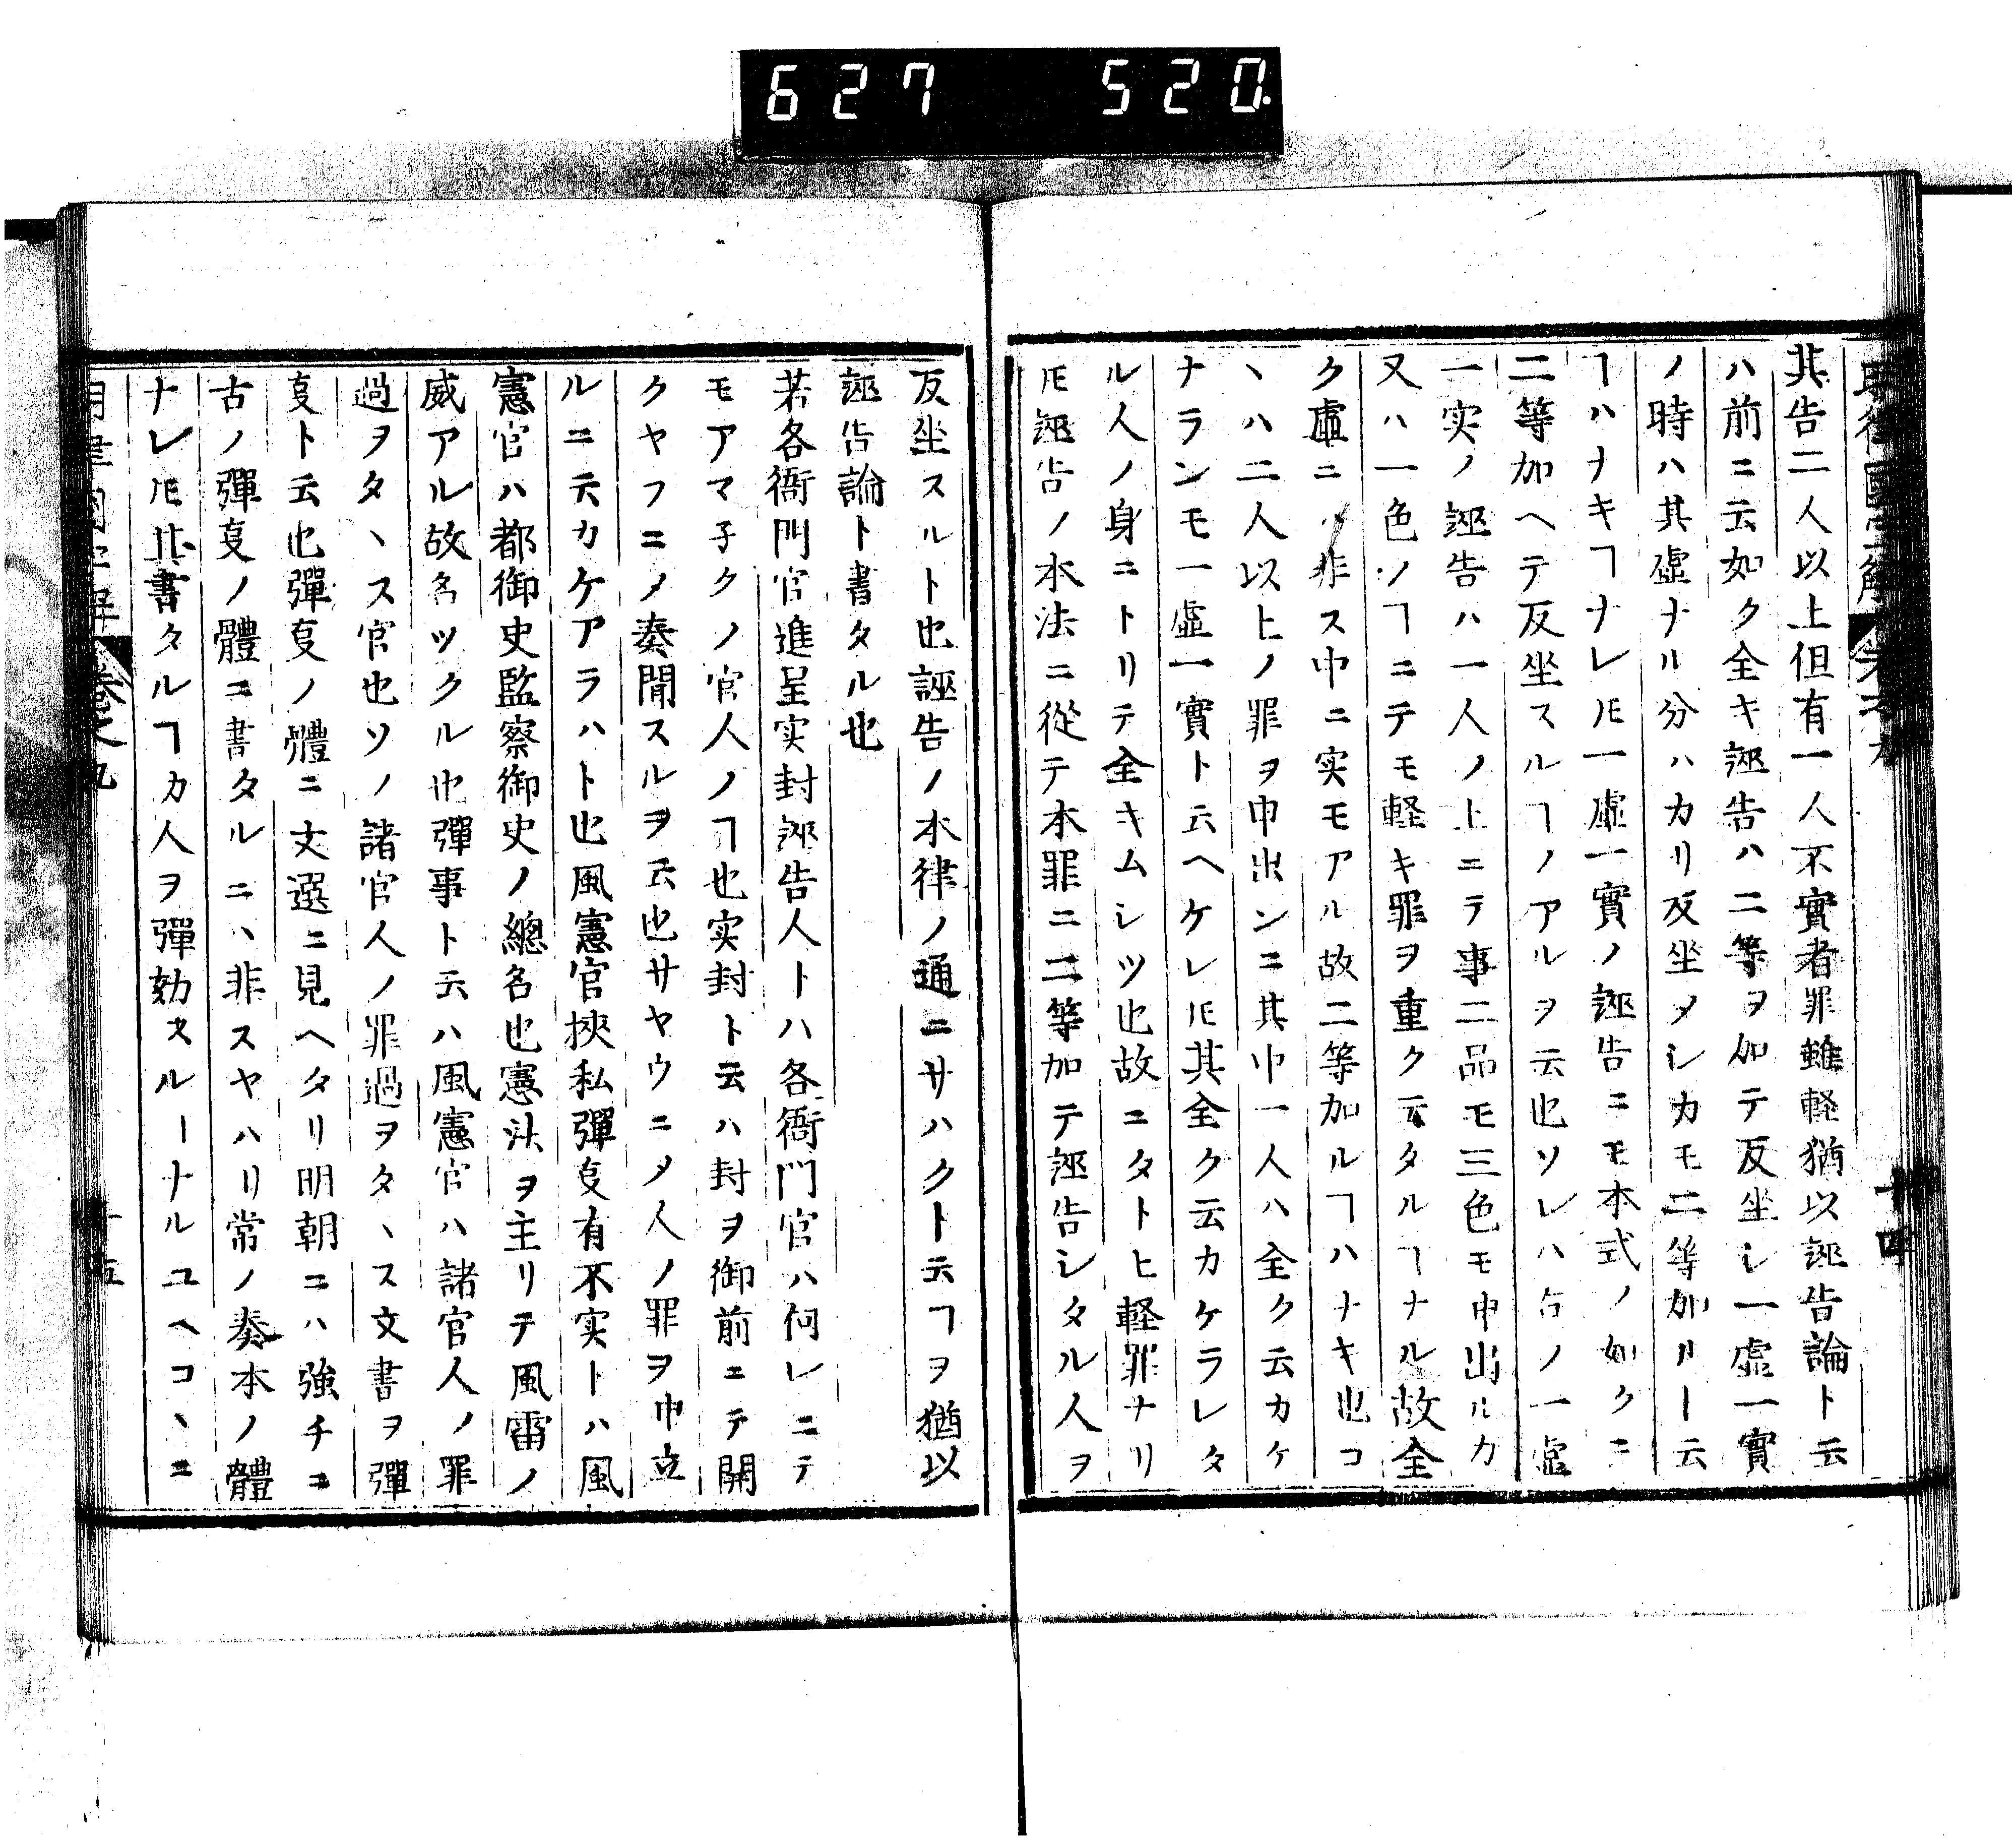 627 520
其告二人以上但有一人不實者罪雖軽猶以誣告論ト云
ハ前ニ云如ク全キ誣告ハ二等ヲ加テ反坐シ一虚一實
ノ時ハ其虚ナル分ハカリ反坐メシカモ二等加ルーー云
ヿハナキヿナレ𪜈一虚一實ノ誣告ニモ本式ノ如クニ
二等加ヘテ反坐スルヿノアルヲ云也ソレハ右ノ一虚
一実ノ誣告ハ一人ノ上ニテ事二品モ三色モ申出ルカ
又ハ一色ノヿニテモ軽キ罪ヲ重ク云タルヿナル故全
ク虚ニハ非ス中ニ実モアル故二等加ルヿハナキ也コ
ヽハ二人以上ノ罪ヲ申出ンニ其中一人ハ全ク云カケ
ナランモ一虚一實ト云ヘケレ𪜈其全ク云カケラレタ
ル人ノ身ニトリテ全キムシツ也故ニタトヒ軽罪ナリ
𪜈誣告ノ本法ニ從テ本罪ニ二等加テ誣告シタル人ヲ
反坐スルト也誣告ノ本律ノ通ニサハクト云ヿヲ猶以
誣告論ト書タル也
若各衙門官進呈実封誣告人トハ各衙門官ハ何レニテ
モアマ子クノ官人ノヿ也実封ト云ハ封ヲ御前ニテ開
クヤフニメ奏聞スルヲ云也サヤウニメ人ノ罪ヲ申立
ルニ云カケアラハト也風憲官挾私彈㕝有不実トハ風
憲官ハ都御史監察御史ノ總名也憲法ヲ主リテ風雷ノ
威アル故名ツクル也彈事ト云ハ風憲官ハ諸官人ノ罪
過ヲタヽス官也ソノ諸官人ノ罪過ヲタヽス文書ヲ彈
㕝ト云也彈㕝ノ體ニ文選ニ見ヘタリ明朝ニハ強チニ
古ノ彈㕝ノ體ニ書タルニハ非スヤハリ常ノ奏本ノ體
ナレ𪜈其書タルヿカ人ヲ彈劾スルーナルユヘコヽニ
十五